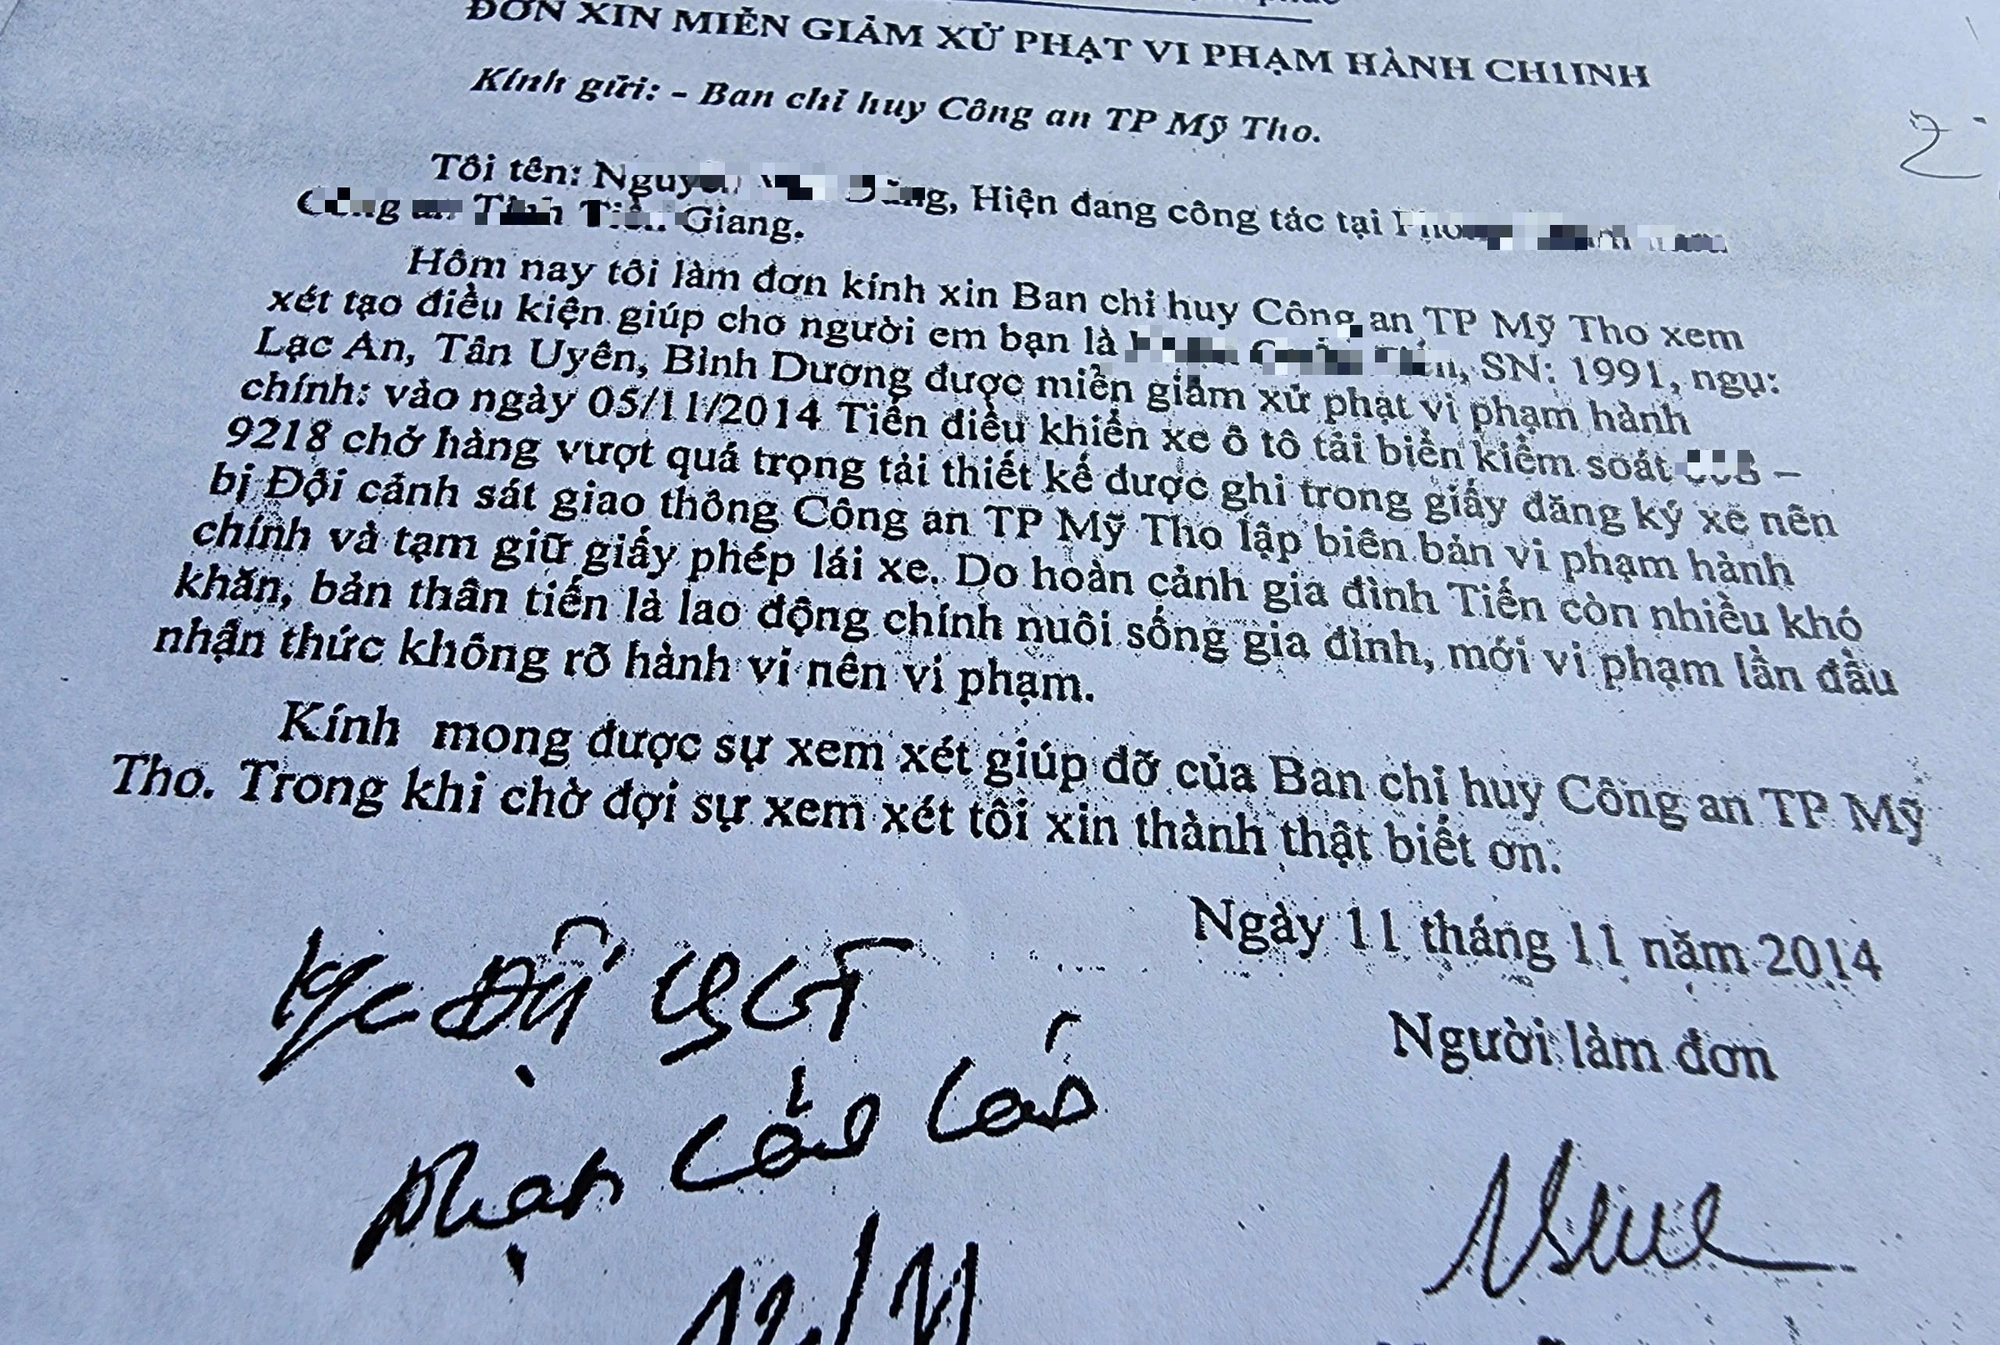 ĐƠN XIN MIỄN GIẢM XỬ PHẠT VI PHẠM HÀNH CH1INH
Kính gửi: - Ban chỉ huy Công an TP Mỹ Tho.
Tôi tên: Hiện đang công tác tại
Giang.
Hôm nay tôi làm đơn kính xin Ban chỉ huy Công an TP Mỹ Tho xem
xét tạo điều kiện giúp cho người em bạn là SN: 1991, ngụ:
Lạc An, Tân Uyên, Bình Dương được miễn giảm xử phạt vi phạm hành
chính: vào ngày 05/11/2014 Tiến điều khiển xe ô tô tải biển kiểm soát –
9218 chở hàng vượt quá trọng tải thiết kế được ghi trong giấy đăng ký xe nên
bị Đội cảnh sát giao thông Công an TP Mỹ Tho lập biên bản vi phạm hành
chính và tạm giữ giấy phép lái xe. Do hoàn cảnh gia đình Tiến còn nhiều khó
khăn, bản thân tiến là lao động chính nuôi sống gia đình, mới vi phạm lần đầu
nhận thức không rõ hành vi nên vi phạm.
Kính mong được sự xem xét giúp đỡ của Ban chỉ huy Công an TP Mỹ
Tho. Trong khi chờ đợi sự xem xét tôi xin thành thật biết ơn.
Ngày 11 tháng 11 năm 2014
Người làm đơn